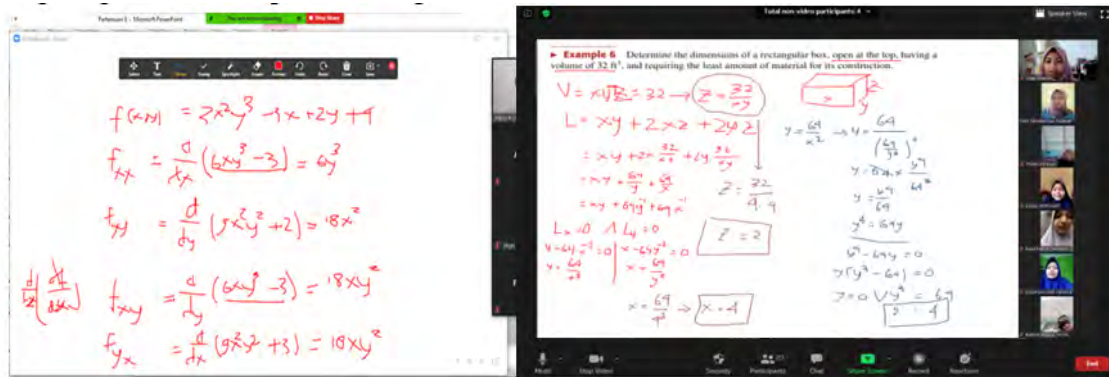 Pertemuan 2 - Microsoft PowerPoint
Stop Share
f(x,y) = 2x²y³ - 3x + 2y + 4
f_xx = d/dx (6xy³ - 3) = 6y³
f_yy = d/dy (9x²y² + 2) = 18x²
f_xy = d/dy (6xy³ - 3) = 18xy²
f_yx = d/dx (9x²y² + 3) = 18xy²
Total non-video participants: 4
Speaker View
Example 6 Determine the dimensions of a rectangular box, open at the top, having a
volume of 32 ft³, and requiring the least amount of material for its construction.
V = xyz = 32 → z = 32/xy
L = xy + 2xz + 2yz
= xy + 2x 32/xy + 2y 32/xy
= xy + 64/y + 64/x
= xy + 64y⁻¹ + 64x⁻¹
L_x = 0 ∧ L_y = 0
y - 64x⁻² = 0
x - 64y⁻² = 0
y = 64/x²
x = 64/y²
x = 64/4² → x = 4
z = 32/4.4
z = 2
x
y
z
y = 64/x² → y = 64/(64/y²)²
y = 64 x y⁴/64²
y = y⁴/64
y⁴ = 64y
y⁴ - 64y = 0
y(y³ - 64) = 0
Mute
Stop Video
Security
Participants
Chat
Share Screen
Record
Reactions
End